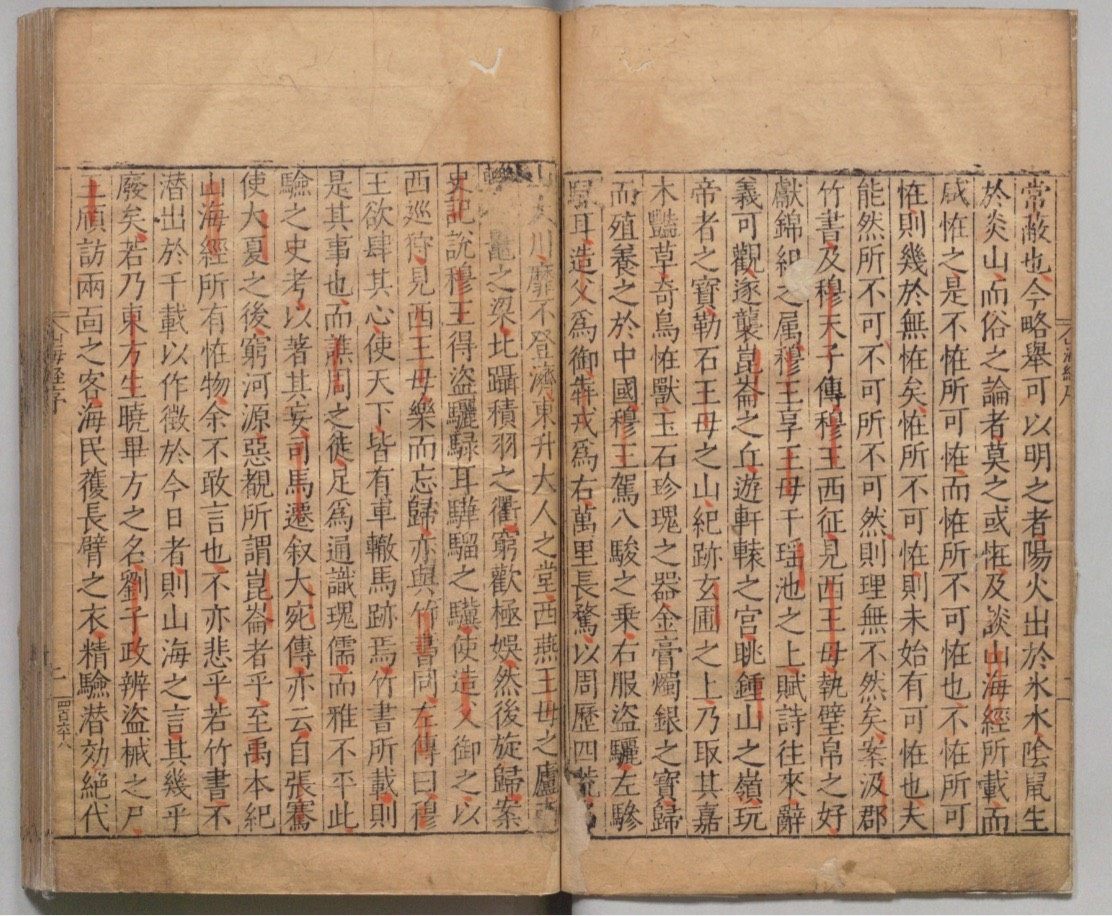 常敝也今略舉可以明之者陽火出於氷水陰鼠生
於炎山而俗之論者莫之或恠及談山海經所載而
咸恠之是不恠所可恠而恠所不可恠也不恠所可
恠則幾於無恠矣恠所不可恠則未始有可恠也夫
能然所不可不可所不可然則理無不然矣案汲郡
竹書及穆天子傳穆王西征見西王母執璧帛之好
獻錦組之属穆王享王母于瑶池之上賦詩往來辭
義可觀遂襲崑崙之丘遊軒轅之宮眺鍾山之嶺玩
帝者之寶勒石王母之山紀跡玄圃之上乃取其嘉
木豔草奇鳥恠獸玉石珍瑰之器金膏燭銀之寶歸
而殖養之於中國穆王駕八駿之乗右服盗驪左驂
騄耳造父爲御犇戎爲右萬里長騖以周歷四荒名
山大川靡不登濟東升大人之堂西燕王母之廬
黿之梁北躡積羽之衢窮歡極娛然後旋歸案
史記說穆王得盗驪騄耳驊騮之驥使造父御之以
西巡狩見西王母樂而忘歸亦與竹書同左傳曰穆
王欲肆其心使天下皆有車轍馬跡焉竹書所載則
是其事也而譙周之徒足爲通識瑰儒而雅不平此
驗之史考以著其妄司馬遷叙大宛傳亦云自張騫
使大夏之後窮河源惡覩所謂崑崙者乎至禹本紀
山海經所有恠物余不敢言也不亦悲乎若竹書不
潜出於千載以作徵於今日者則山海之言其幾乎
廢矣若乃東方生曉畢方之名劉子政辨盗械之尸
王頎訪兩靣之客海民獲長臂之衣精驗潜効絶代
山海經序
一
山海經序
二
四百六八